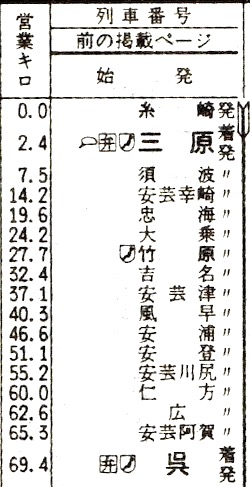 営業キロ 列車番号
前の掲載ページ
始発
0.0 糸崎発
2.4 弁 三原着発
7.5 須波〃
14.2 安芸幸崎〃
19.6 忠海〃
24.2 大乗〃
27.7 竹原〃
32.4 吉名〃
37.1 安芸津〃
40.3 風早〃
46.6 安浦〃
51.1 安登〃
55.2 安芸川尻〃
60.0 仁方〃
62.6 広〃
65.3 安芸阿賀〃
69.4 弁 呉着発